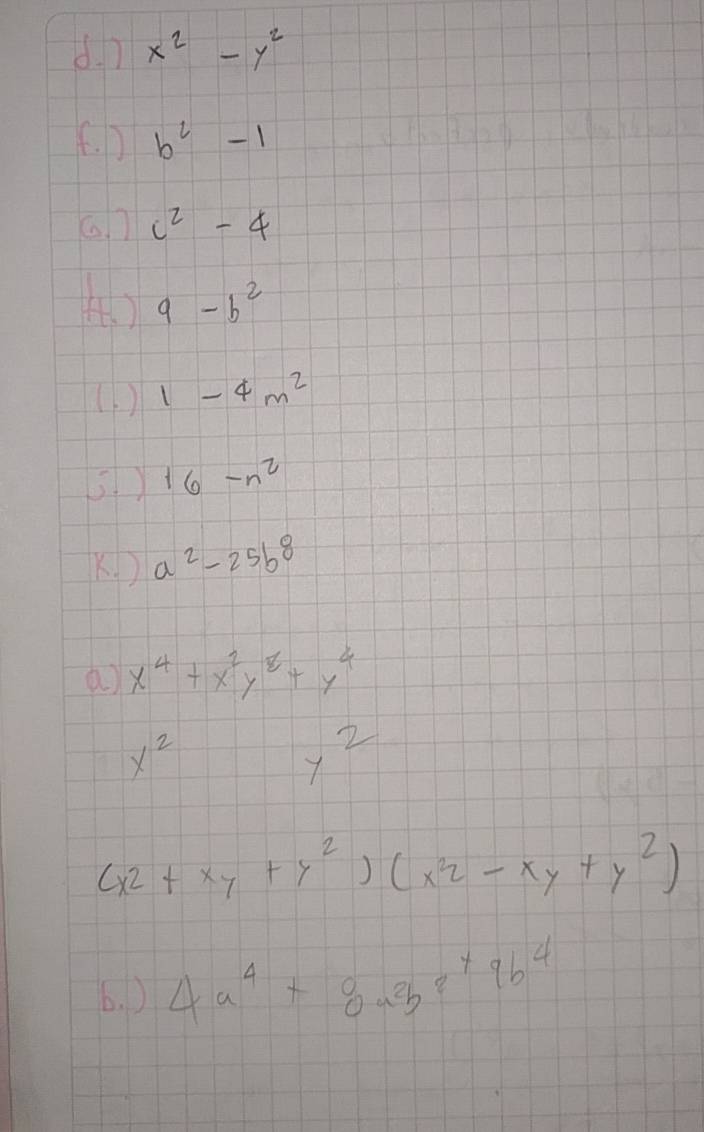 d.) x² - y²
f.) b² - 1
G.) c² - 4
H.) 9 - b²
I.) 1 - 4m²
J.) 16 - n²
K.) a² - 25b⁸
a) x⁴ + x²y² + y⁴
x² y²
(x2 + xy + y²) (x²2 - xy + y²)
b.) 4a⁴ + 8a²b² + 9b⁴